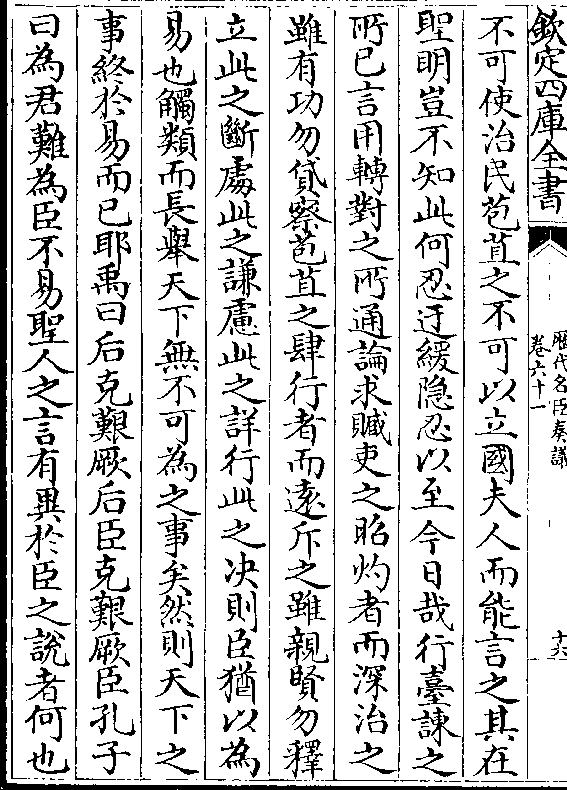 欽定四庫全書
歴代名臣奏議
卷六十一
十六
不可使治民苞苴之不可以立國夫人而能言之其在
聖明豈不知此何忍迂緩隐忍以至今日哉行臺諫之
所已言用轉對之所通論求贓吏之昭灼者而深治之
雖有功勿貸察苞苴之肆行者而遠斥之雖親賢勿釋
立此之斷處此之謙慮此之詳行此之决則臣猶以為
易也觸類而長舉天下無不可為之事矣然則天下之
事終於易而已耶禹曰后克艱厥后臣克艱厥臣孔子
曰為君難為臣不易聖人之言有異於臣之説者何也